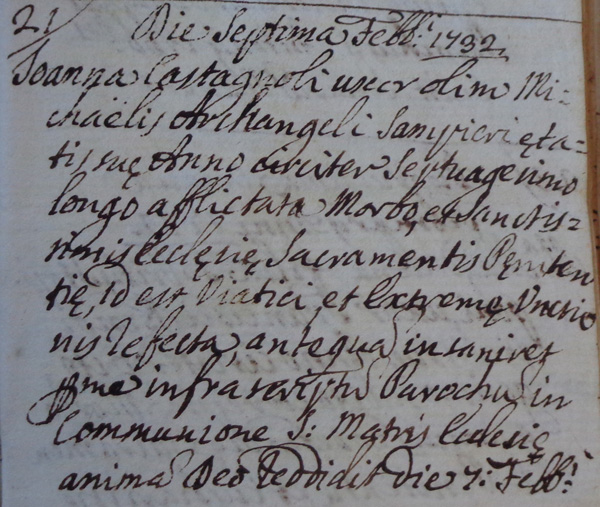 21 Die Septima Febb: 1732
Joanna Castagnoli uxor olim Mi=
chaëlis Archangeli Sampieri ęta=
tis suę Anno circiter Septuagesimo
longo afflictata Morbo, et Sanctis=
simis Eclęsię Sacramentis Pęniten
tię, id est Viatici, et Extremę Unctio
nis refecta, antequā insaniret
p me infrascriptū Parochū in
Communione S: Matris Eclesię
animā Deo Reddidit die 7: Febb: